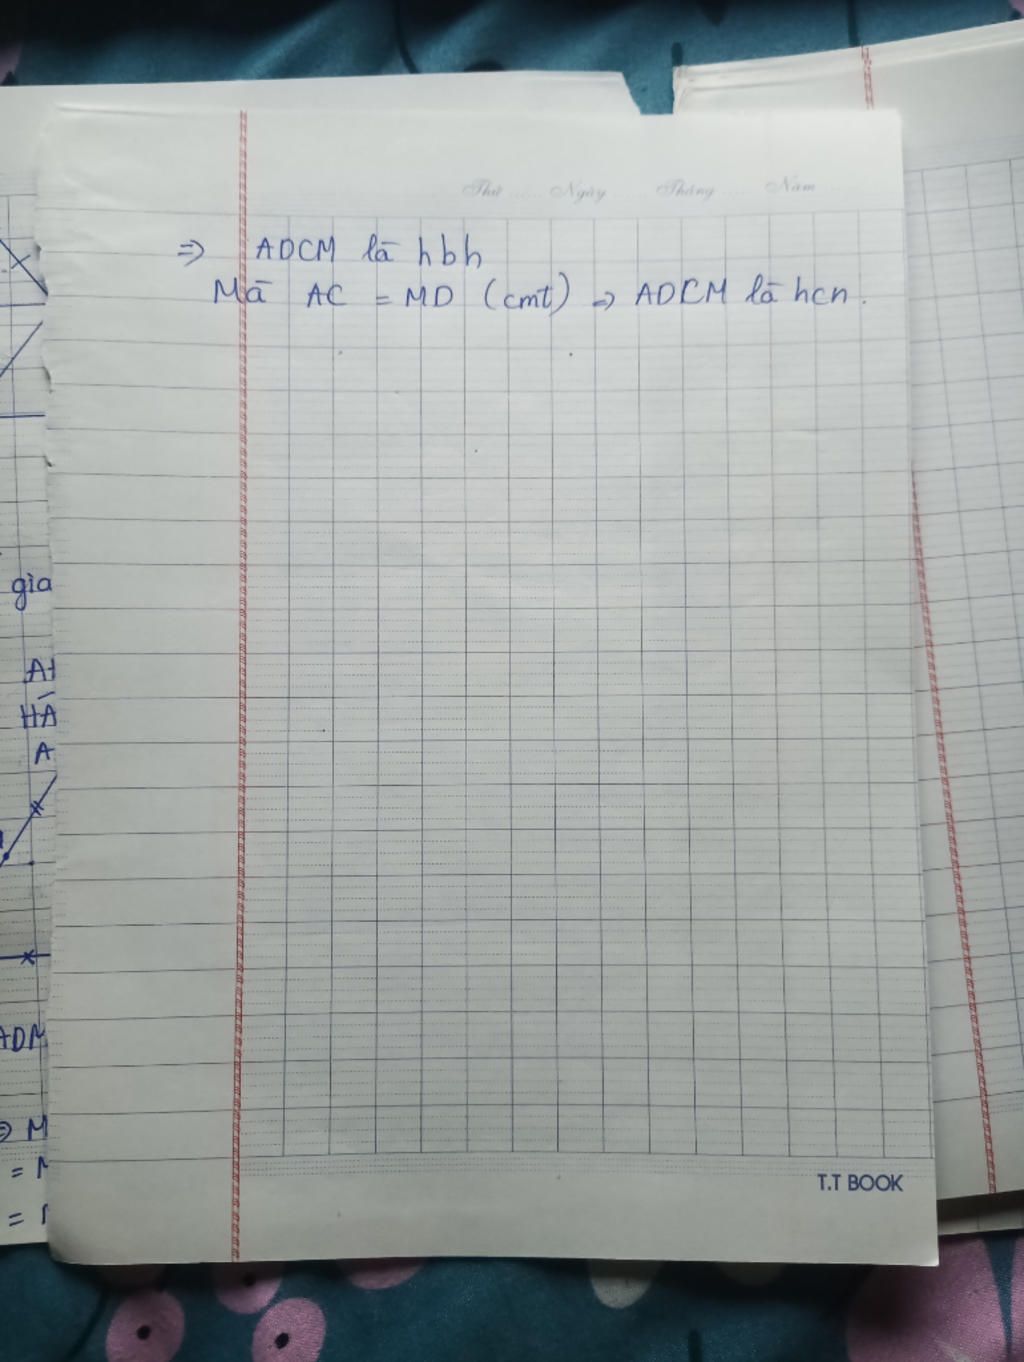 Thứ ...... Ngày ...... Tháng ...... Năm ......
⇒ ADCM là hbh
Mà AC = MD (cmt) ⇒ ADCM là hcn.
gia
HA
A
ADM
⇒ M
= M
T.T BOOK